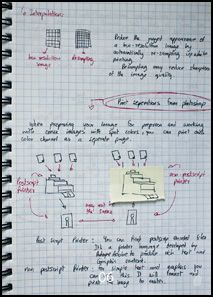 Interpolation:
Reduce the jagged appearance of
a low-resolution image by
automatically re-sampling up while
printing.
Resampling may reduce sharpness
of the image quality
low resolution
image
resampling
Print separations from photoshop
When preparing your image for prepress and working
with CMYK images with spot colors, you can print each
color channel as a separate page.
Postscript
printer
non-postscript
printer
post script printer : You can print postscript encoded files
It's a printer language developed by
Adobe. Reliable to produce rich text and
graphics content.
non postscript printer : For simple text and graphics you
can use this. It will convert and
print image to raster.